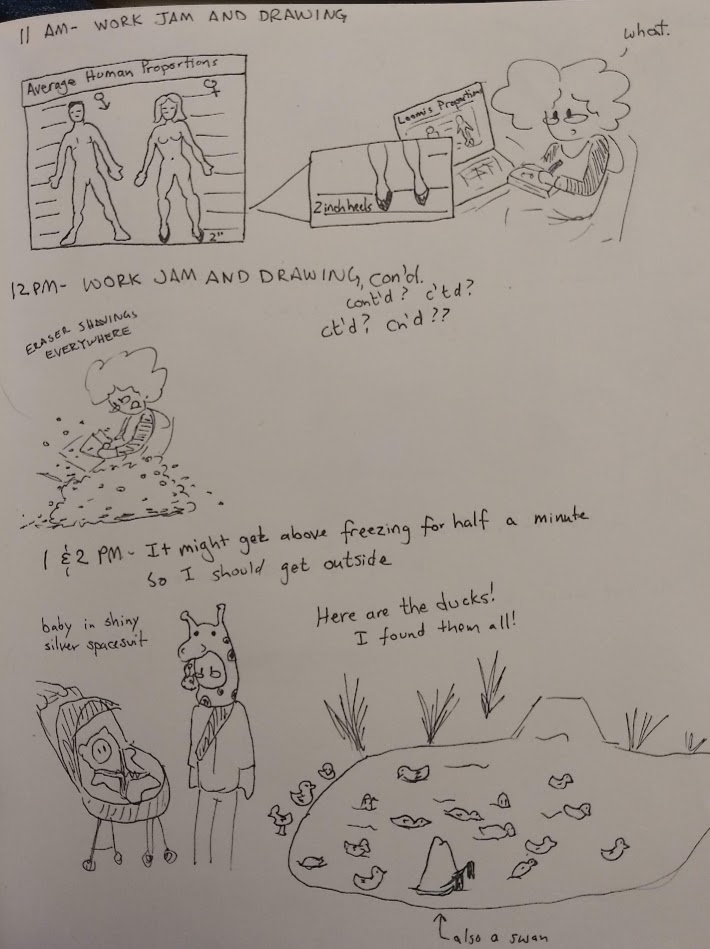 11 AM- WORK JAM AND DRAWING
what.
Average Human Proportions
♂
♀
2"
Loomis Proportions
2 inch heels
12PM- WORK JAM AND DRAWING, con'd.
cont'd? c'td?
ct'd? cn'd??
ERASER SHAVINGS
EVERYWHERE
1 & 2 PM- It might get above freezing for half a minute
So I should get outside
baby in shiny
silver spacesuit
Here are the ducks!
I found them all!
also a swan